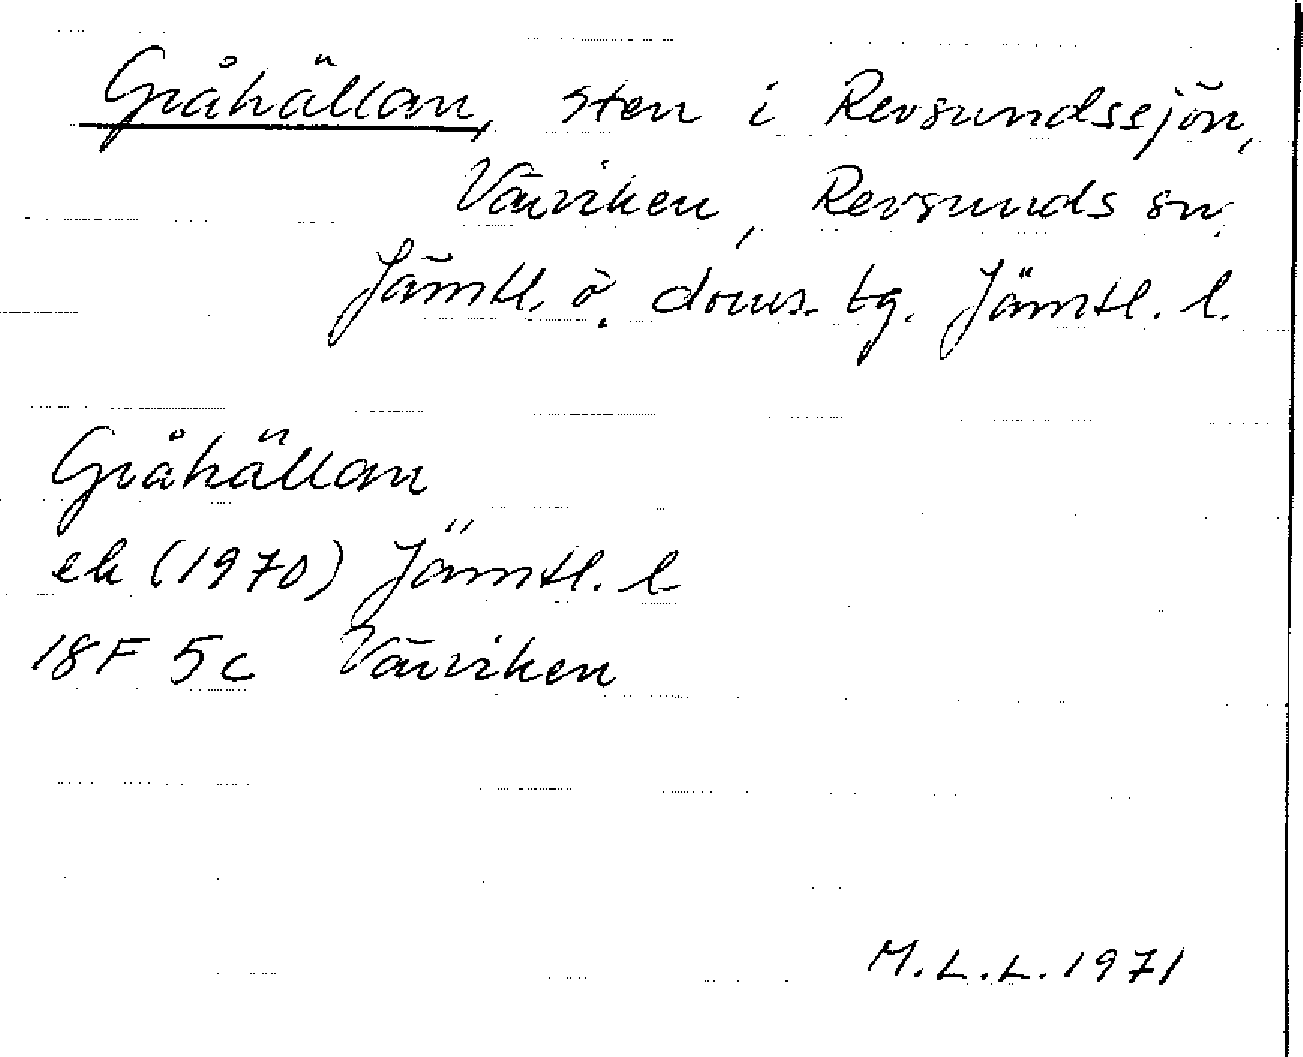 Gråhällan, sten i Revsundssjön,
Väviken, Revsunds sn.
Jämtl. ö. doms. tg. Jämtl. l.
Gråhällan
ek (1970) Jämtl. l
18F 5c Väviken
M.L.L. 1971